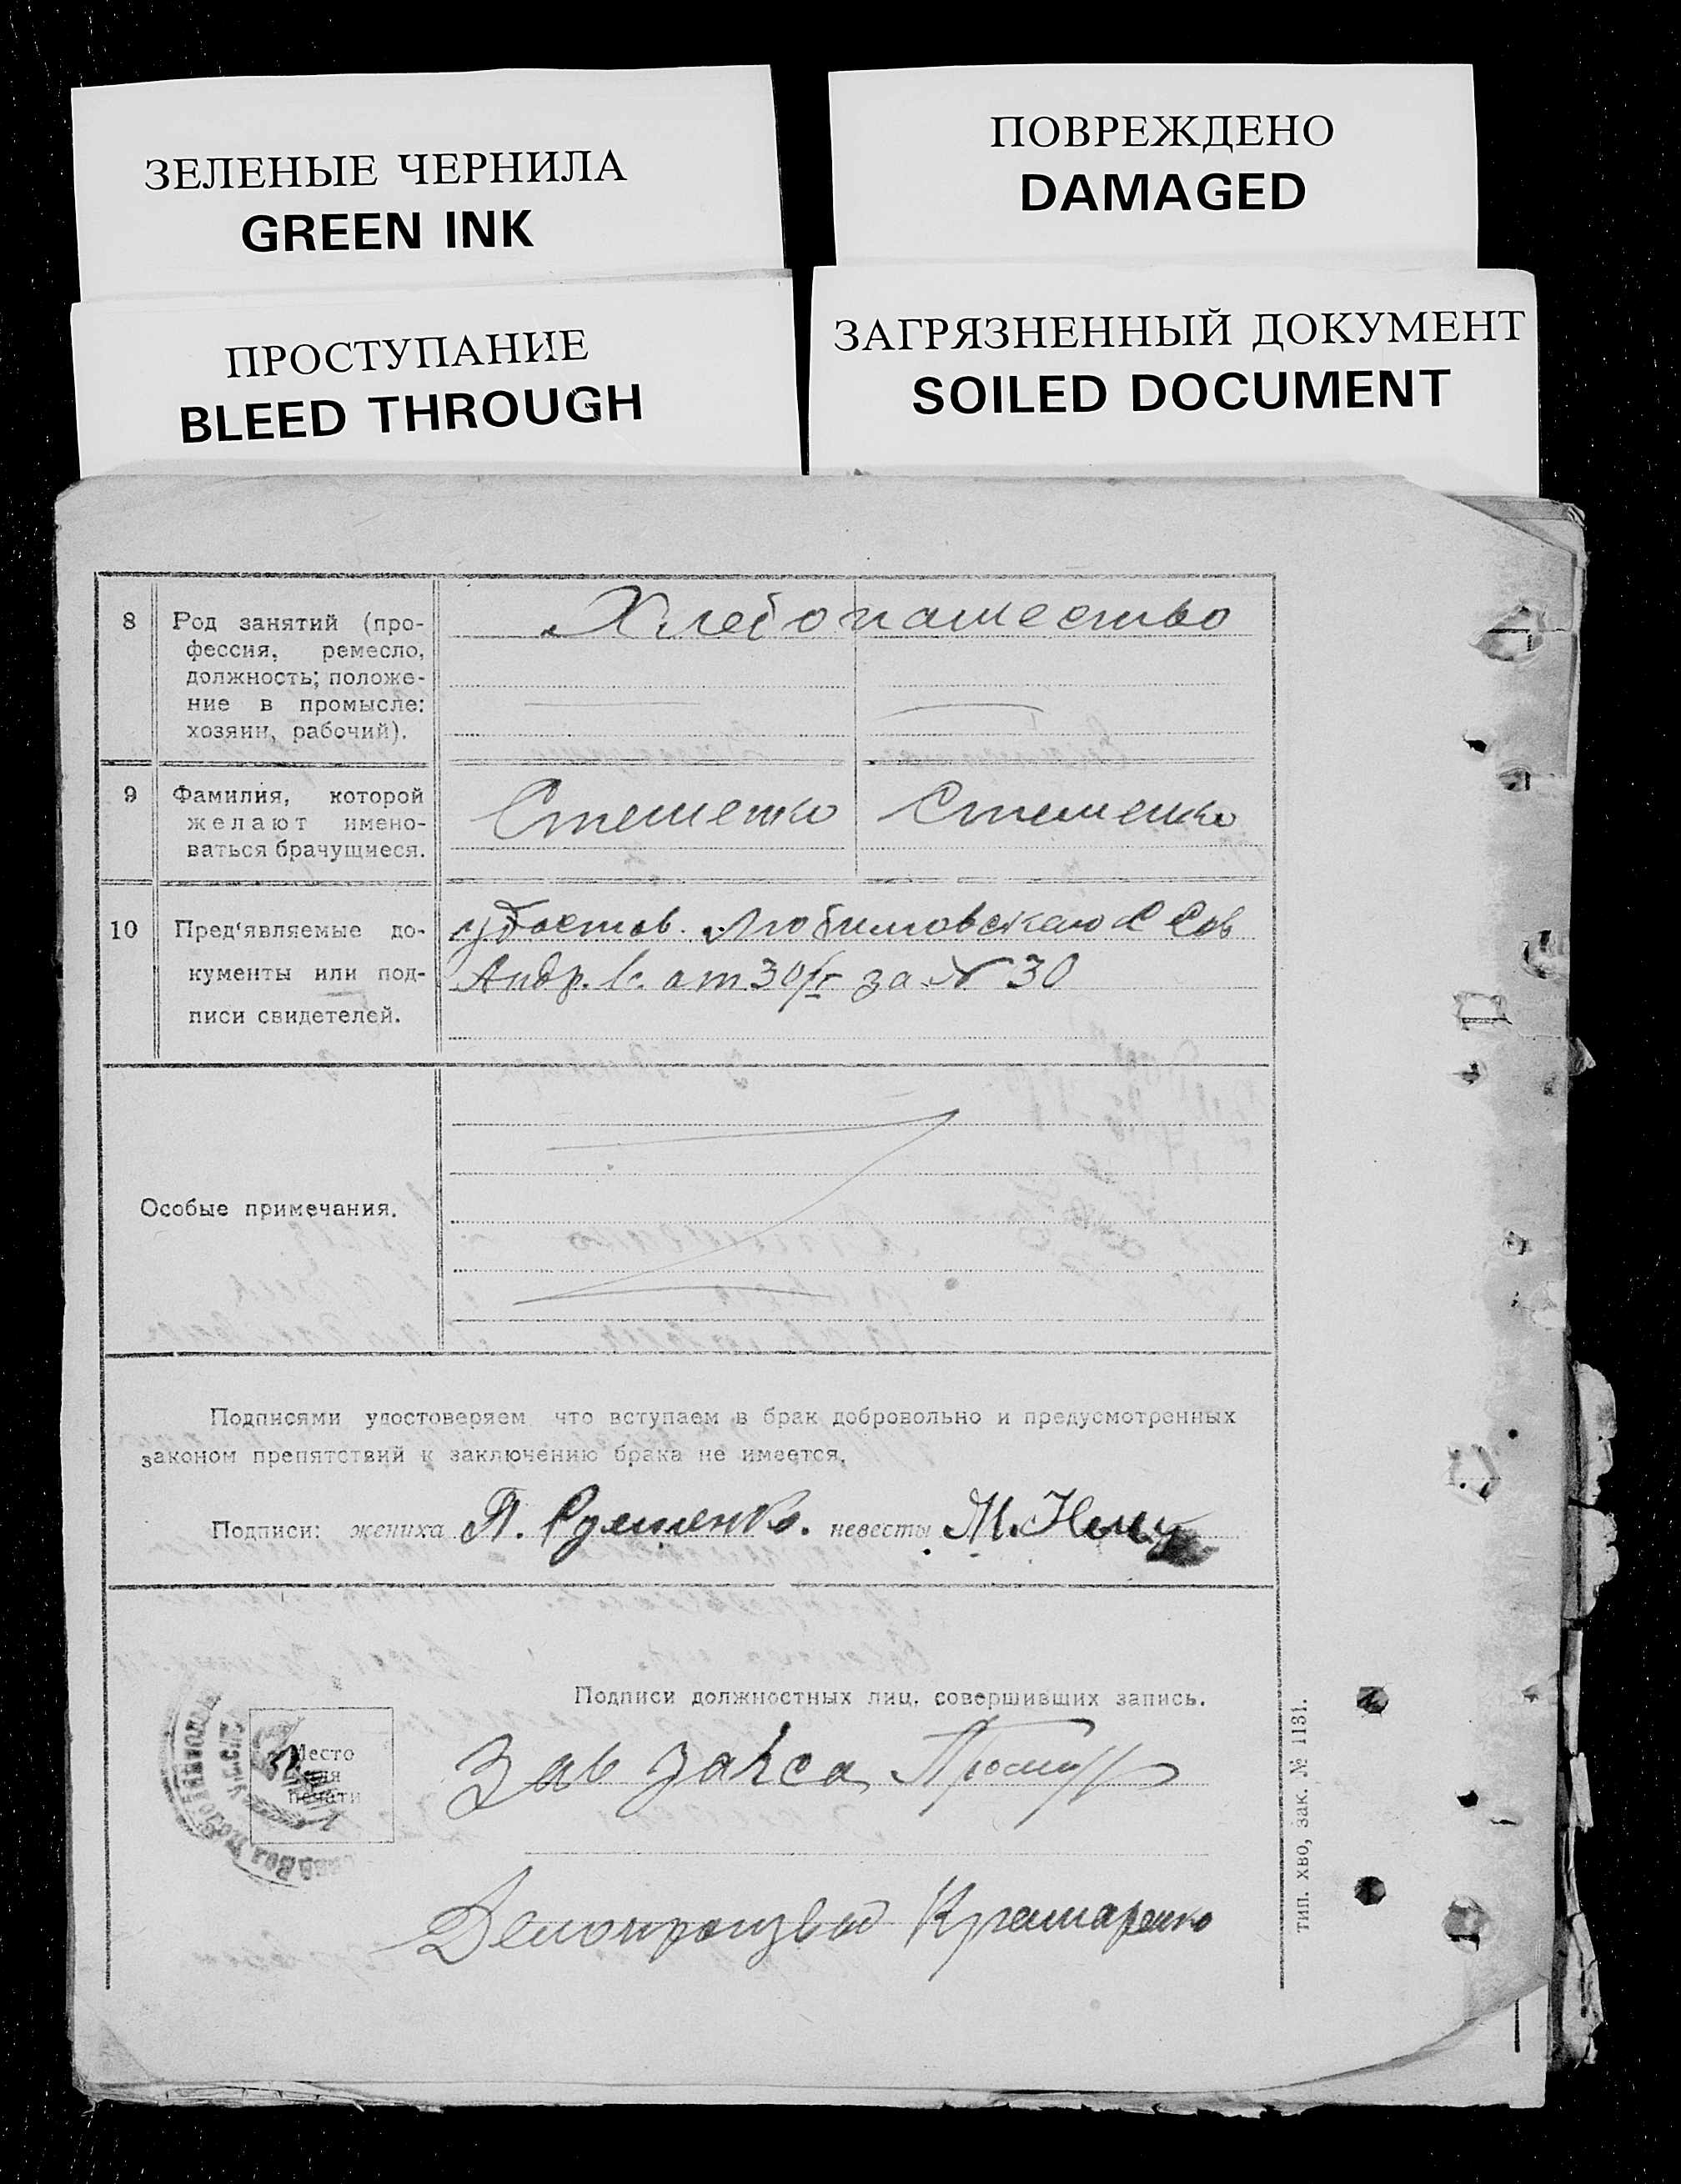 ЗЕЛЕНЫЕ ЧЕРНИЛА
GREEN INK
ПОВРЕЖДЕНО
DAMAGED
ПРОСТУПАНИЕ
BLEED THROUGH
ЗАГРЯЗНЕННЫЙ ДОКУМЕНТ
SOILED DOCUMENT
8 Род занятий (про-
фессия, ремесло,
должность; положе-
ние в промысле:
хозяин, рабочий).
Хлебопашество
9 Фамилия, которой
желают имено-
ваться брачущиеся.
Стешенко Стешенко
10 Пред'являемые до-
кументы или под-
писи свидетелей.
удостов. Любимовского С Сов
Андр. от 30/ за № 30
Особые примечания.
Подписями удостоверяем что вступаем в брак добровольно и предусмотренных
законом препятствий к заключению брака не имеется.
Подписи: жениха невесты М.
Подписи должностных лиц, совершивших запись.
Место
для
печати
Зав Загса
Делопроизвод Крамаренко
тип. хво, зак. № 1131.